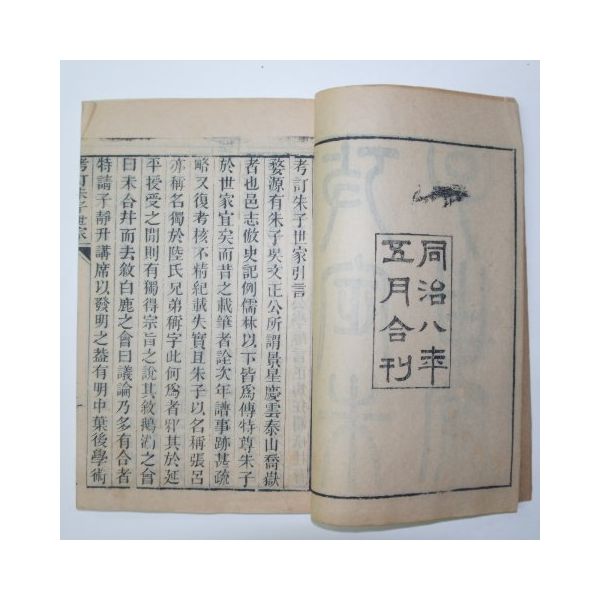 同治八年
五月合刊
考訂朱子世家引言
婺源有朱子吳文正公所謂景星慶雲泰山喬嶽
者也邑志倣史記例儒林以下皆爲傳特尊朱子
於世家宜矣而昔之載筆者詮次年譜事跡甚疏
略又復考核不精紀載失實且朱子以名稱張呂
亦稱名獨於陸氏兄弟稱字此何爲者邪其於延
平授受之間則有獨得宗旨之說其敘鵝湖之會
曰未合并而去敘白鹿之會曰議論乃多有合者
特請子靜升講席以發明之葢有明中葉後學術
考訂朱子世家